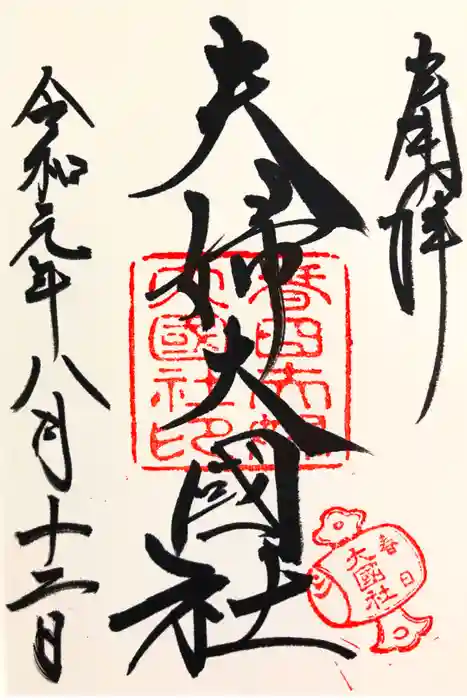 奉拝
夫婦大國社
令和元年八月十二日
春日大社
大國社印
春日
大國社